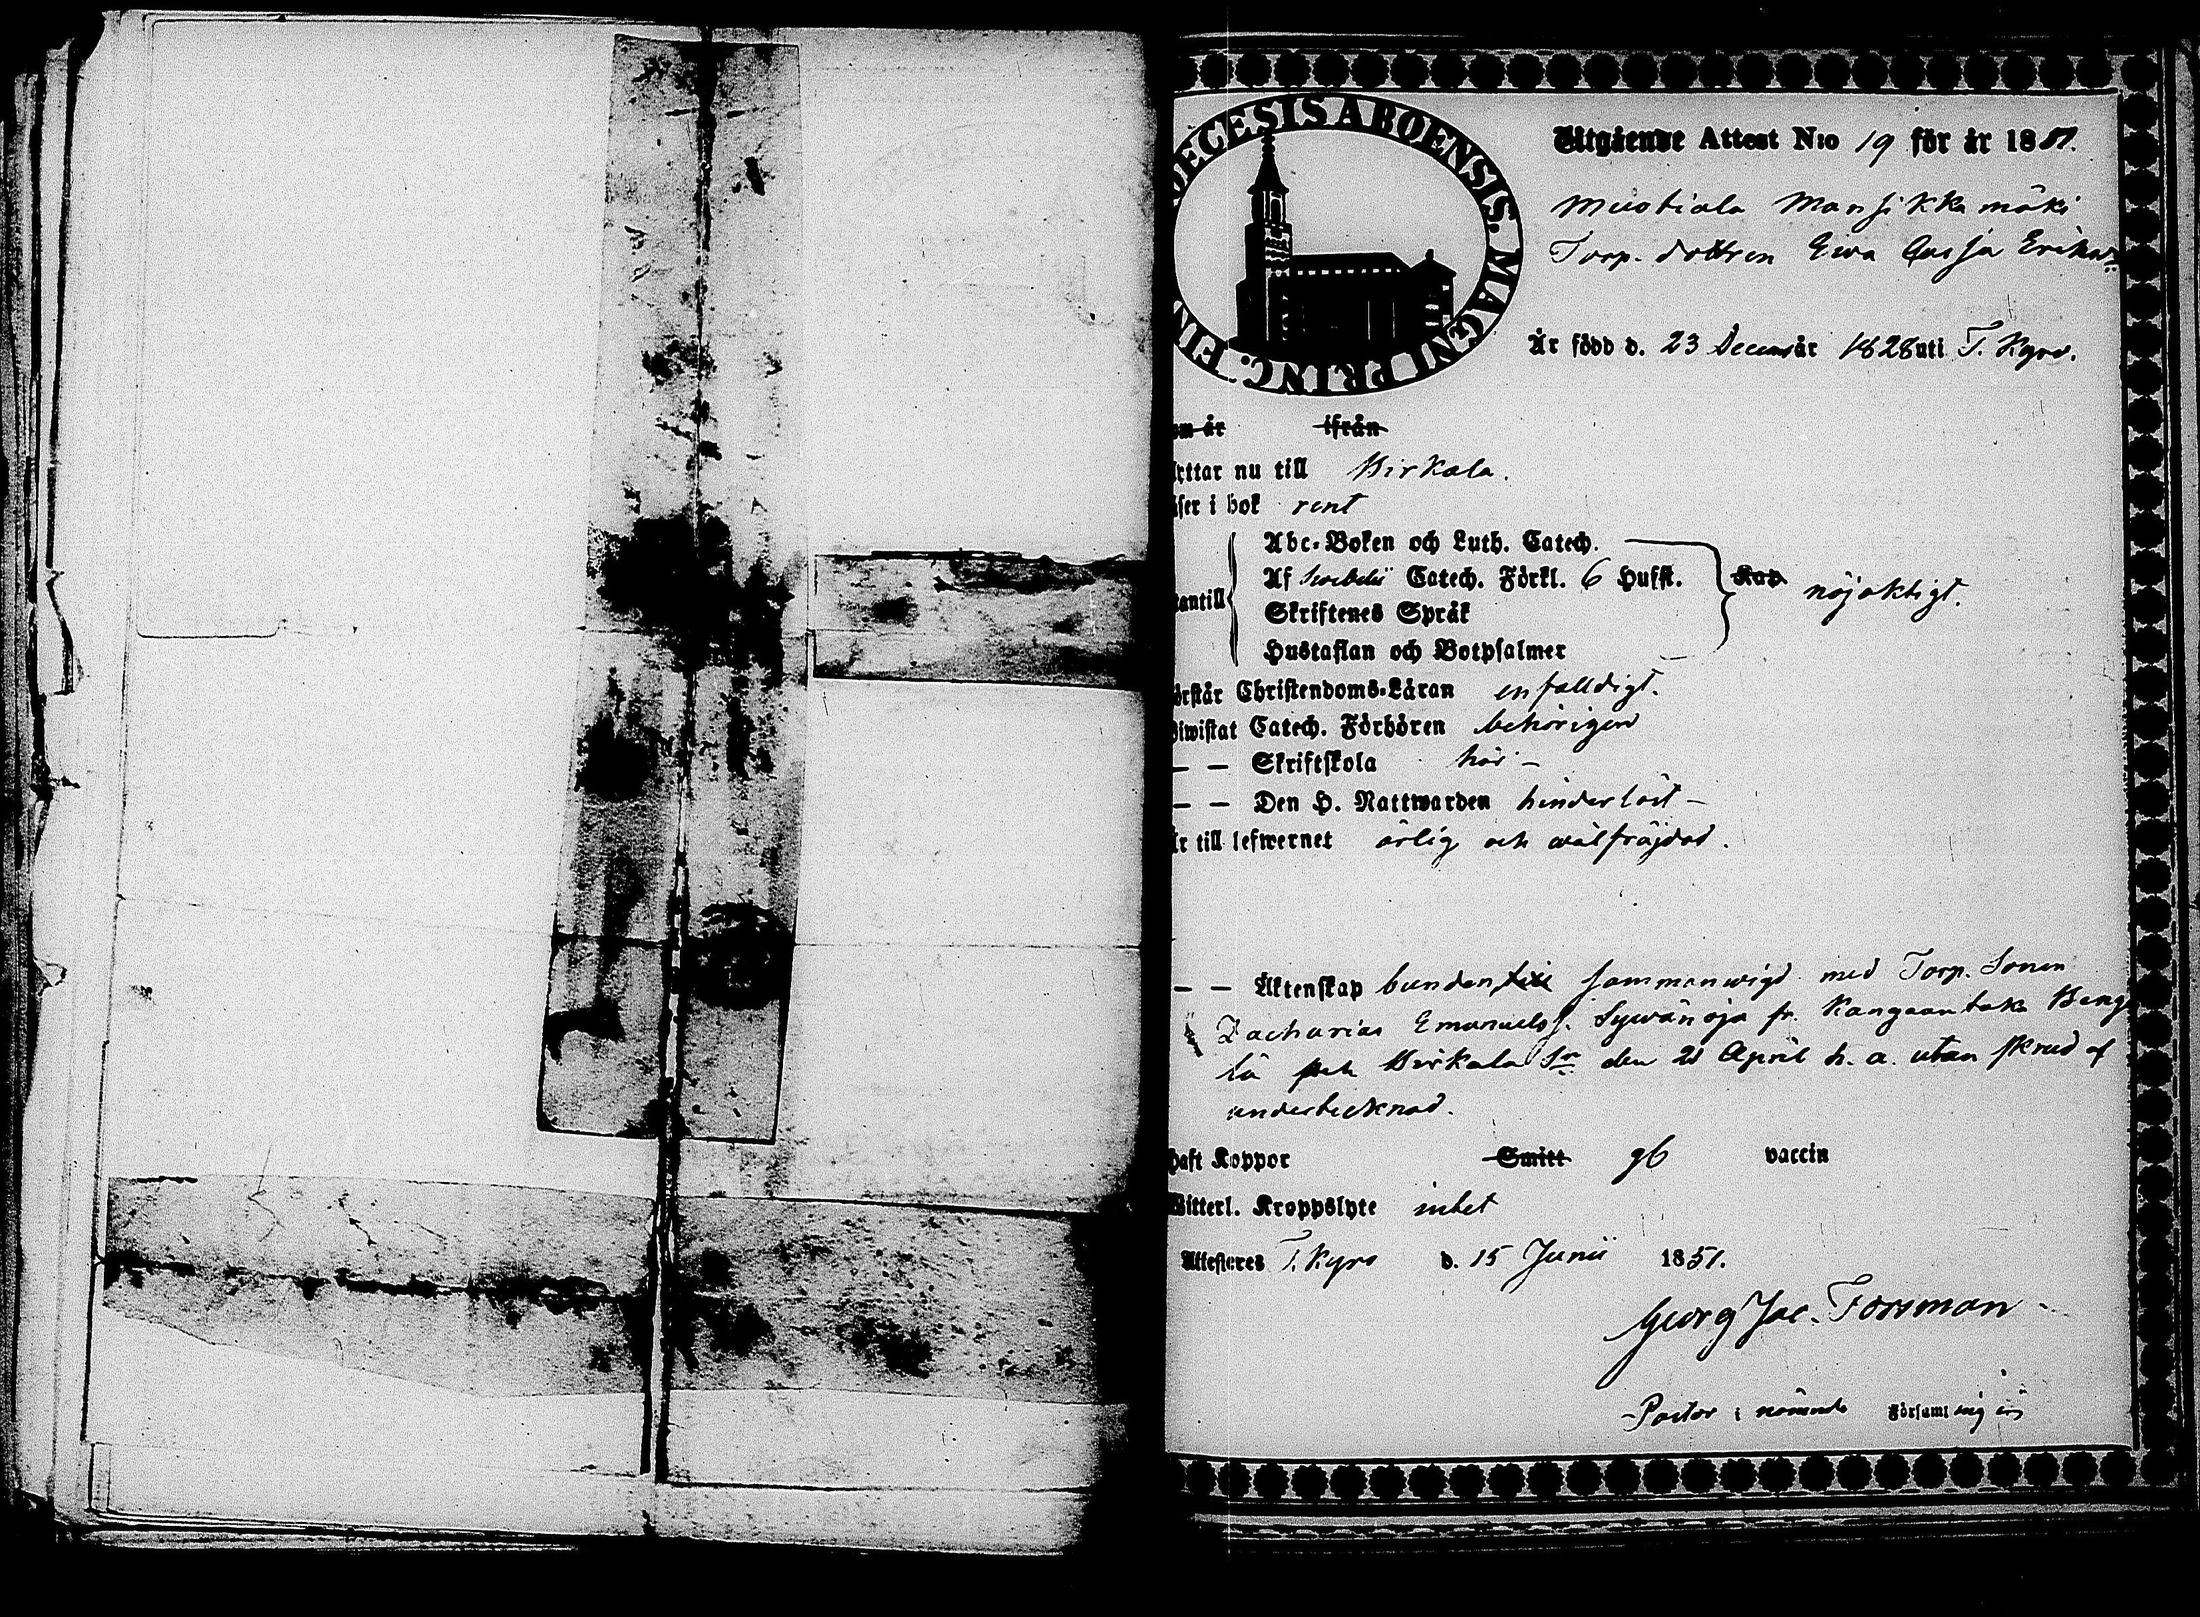 DECESIS ABOENSIS. MAGNI PRINC. FIN
Utgående Attest N:o 19 för år 1851.
Mustiala Mansikkamäki
Torp. dottren Ewa Cajsa Eriksd:r
Är född d. 23 Decem år 1828 uti T. Kyro.
om år ifrån
yttar nu till Birkala.
äser i bok rent
Abc-Boken och Luth. Catech.
Af Swebelii Catech. Förkl. 6 Hufst. Kap nöjaktigt.
tantill
Skriftenes Språk
Hustaflan och Botpsalmer
örstår Christendoms-Läran enfalldigt.
Biwistat Catech. Förhören behörigen
— — Skriftskola här –
— — Den H. Nattwarden hinderlöst –
Är till lefwernet ärlig och wälfräjdad.
— — Äktenskap bunden, sammanwigd med Torp. Sonen
Zacharias Emanuelss. Sywänoja fr. Kangaantaka Beng
lä Birkala S:n den 21 April h. a. utan skrud af
undertecknad.
haft Koppor Smitt gb vaccin
Witterl. Kroppslyte intet
Attesteres T. Kyro d. 15 Junii 1851.
Georg Jac. Forsman
Pastor i nämnde Församl